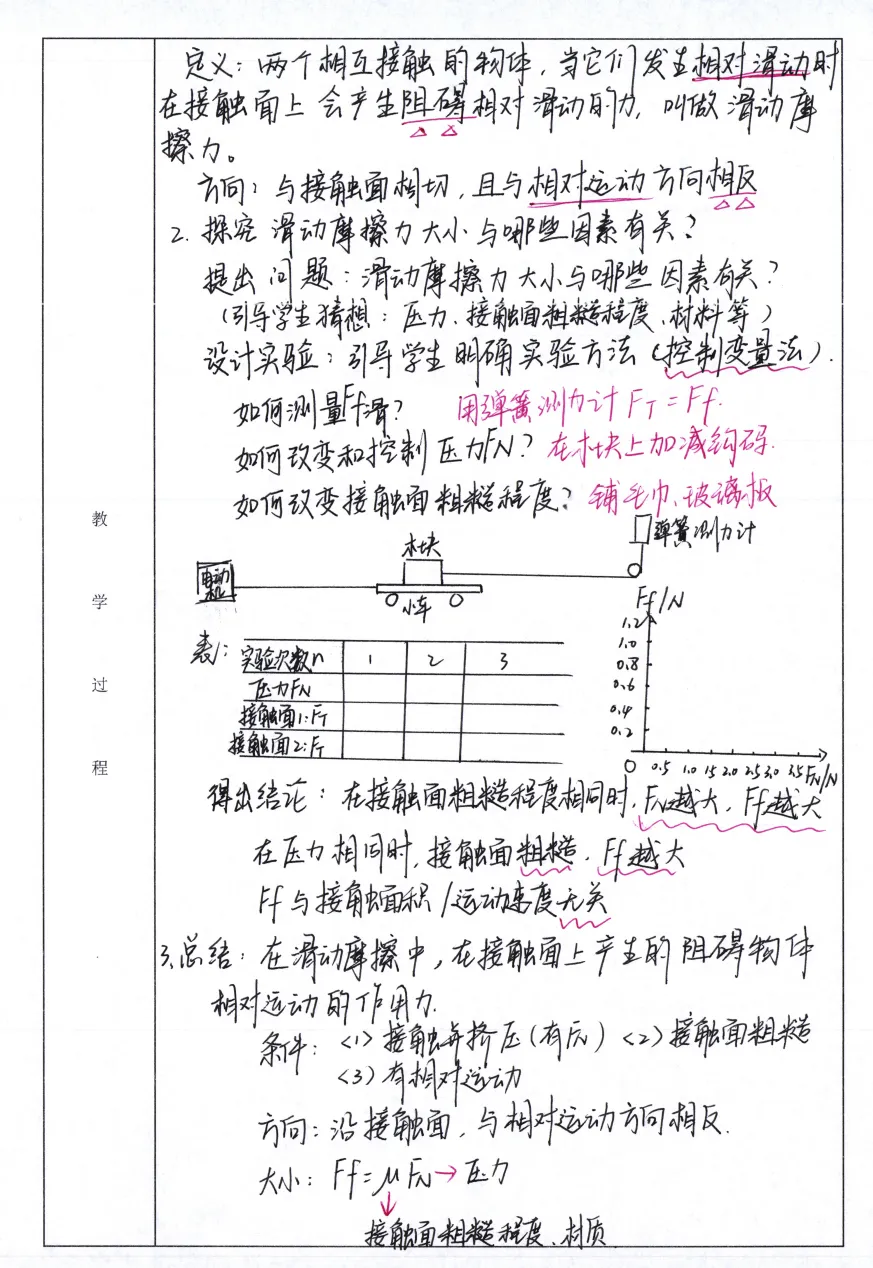 定义：两个相互接触的物体，当它们发生相对滑动时
在接触面上会产生阻碍相对滑动的力，叫做滑动摩
擦力。
方向：与接触面相切，且与相对运动方向相反
2. 探究滑动摩擦力大小与哪些因素有关？
提出问题：滑动摩擦力大小与哪些因素有关？
（引导学生猜想：压力、接触面粗糙程度、材料等）
设计实验：引导学生明确实验方法（控制变量法）.
如何测量Ff滑？ 用弹簧测力计 FT=Ff.
如何改变和控制压力FN？ 在木块上加减钩码.
如何改变接触面粗糙程度？ 铺毛巾、玻璃板
教
学
过
程
弹簧测力计
木块
电动机
小车
表1：
实验次数n 1 2 3
压力FN
接触面1:FT
接触面2:FT
Ff/N
1.2
1.0
0.8
0.6
0.4
0.2
0 0.5 1.0 1.5 2.0 2.5 3.0 3.5 FN/N
得出结论：在接触面粗糙程度相同时，FN越大，Ff越大
在压力相同时，接触面粗糙，Ff越大
Ff与接触面积/运动速度无关
3.总结：在滑动摩擦中，在接触面上产生的阻碍物体
相对运动的作用力.
条件：<1>接触并挤压（有FN）<2>接触面粗糙
<3>有相对运动
方向：沿接触面，与相对运动方向相反.
大小：Ff=μFN→压力
↓
接触面粗糙程度、材质